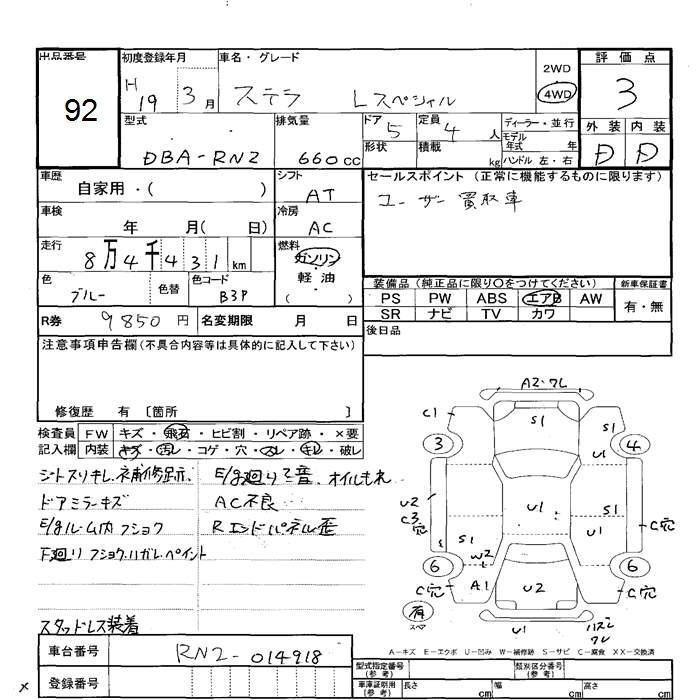 出品番号 92
初度登録年月 H 19 3月
車名・グレード ステラ Lスペシャル
2WD
4WD
評価点 3
型式 DBA-RN2
排気量 660cc
ドア 5
定員 4人
形状
積載 kg
ディーラー・並行
モデル年式 年
ハンドル 左・右
外装 D
内装 D
車歴 自家用・( )
シフト AT
セールスポイント (正常に機能するものに限ります)
ユーザー買取車
車検 年 月( 日)
冷房 AC
走行 8万4千431km
燃料 ガソリン・軽油・( )
色 ブルー
色替
色コード B3P
装備品 (純正品に限り○をつけてください)
PS PW ABS エアB AW
SR ナビ TV カワ
新車保証書 有・無
R券 9850円
名変期限 月 日
後日品
注意事項申告欄(不具合内容等は具体的に記入して下さい)
修復歴 有 〔箇所 〕
検査員記入欄
FW キズ・飛石・ヒビ割・リペア跡・×要
内装 キズ・汚レ・コゲ・穴・スレ・キレ・破レ
シートスリキレ、ネ補修跡、
E/g廻り乙音、オイルもれ
ドアミラーキズ
AC不良
E/gルーム内フショク
Rエンドパネル歪
F廻りフショク・ハガレ・ペイント
スタッドレス装着
A2・ワレ
C1 S1
3 4
U1
U2
C3穴
U1 S1
C穴
S1 U1
W2
6 6
C穴 A1 U2 C穴
有
スペア
U1
ハズレ
ワレ
A-キズ E-エクボ U-凹み W-補修跡 S-サビ C-腐食 XX-交換済
車台番号 RN2-014918
登録番号
型式指定番号(参考)
類別区分番号(参考)
車庫証明用(参考) 長さ cm 幅 cm 高さ cm
×